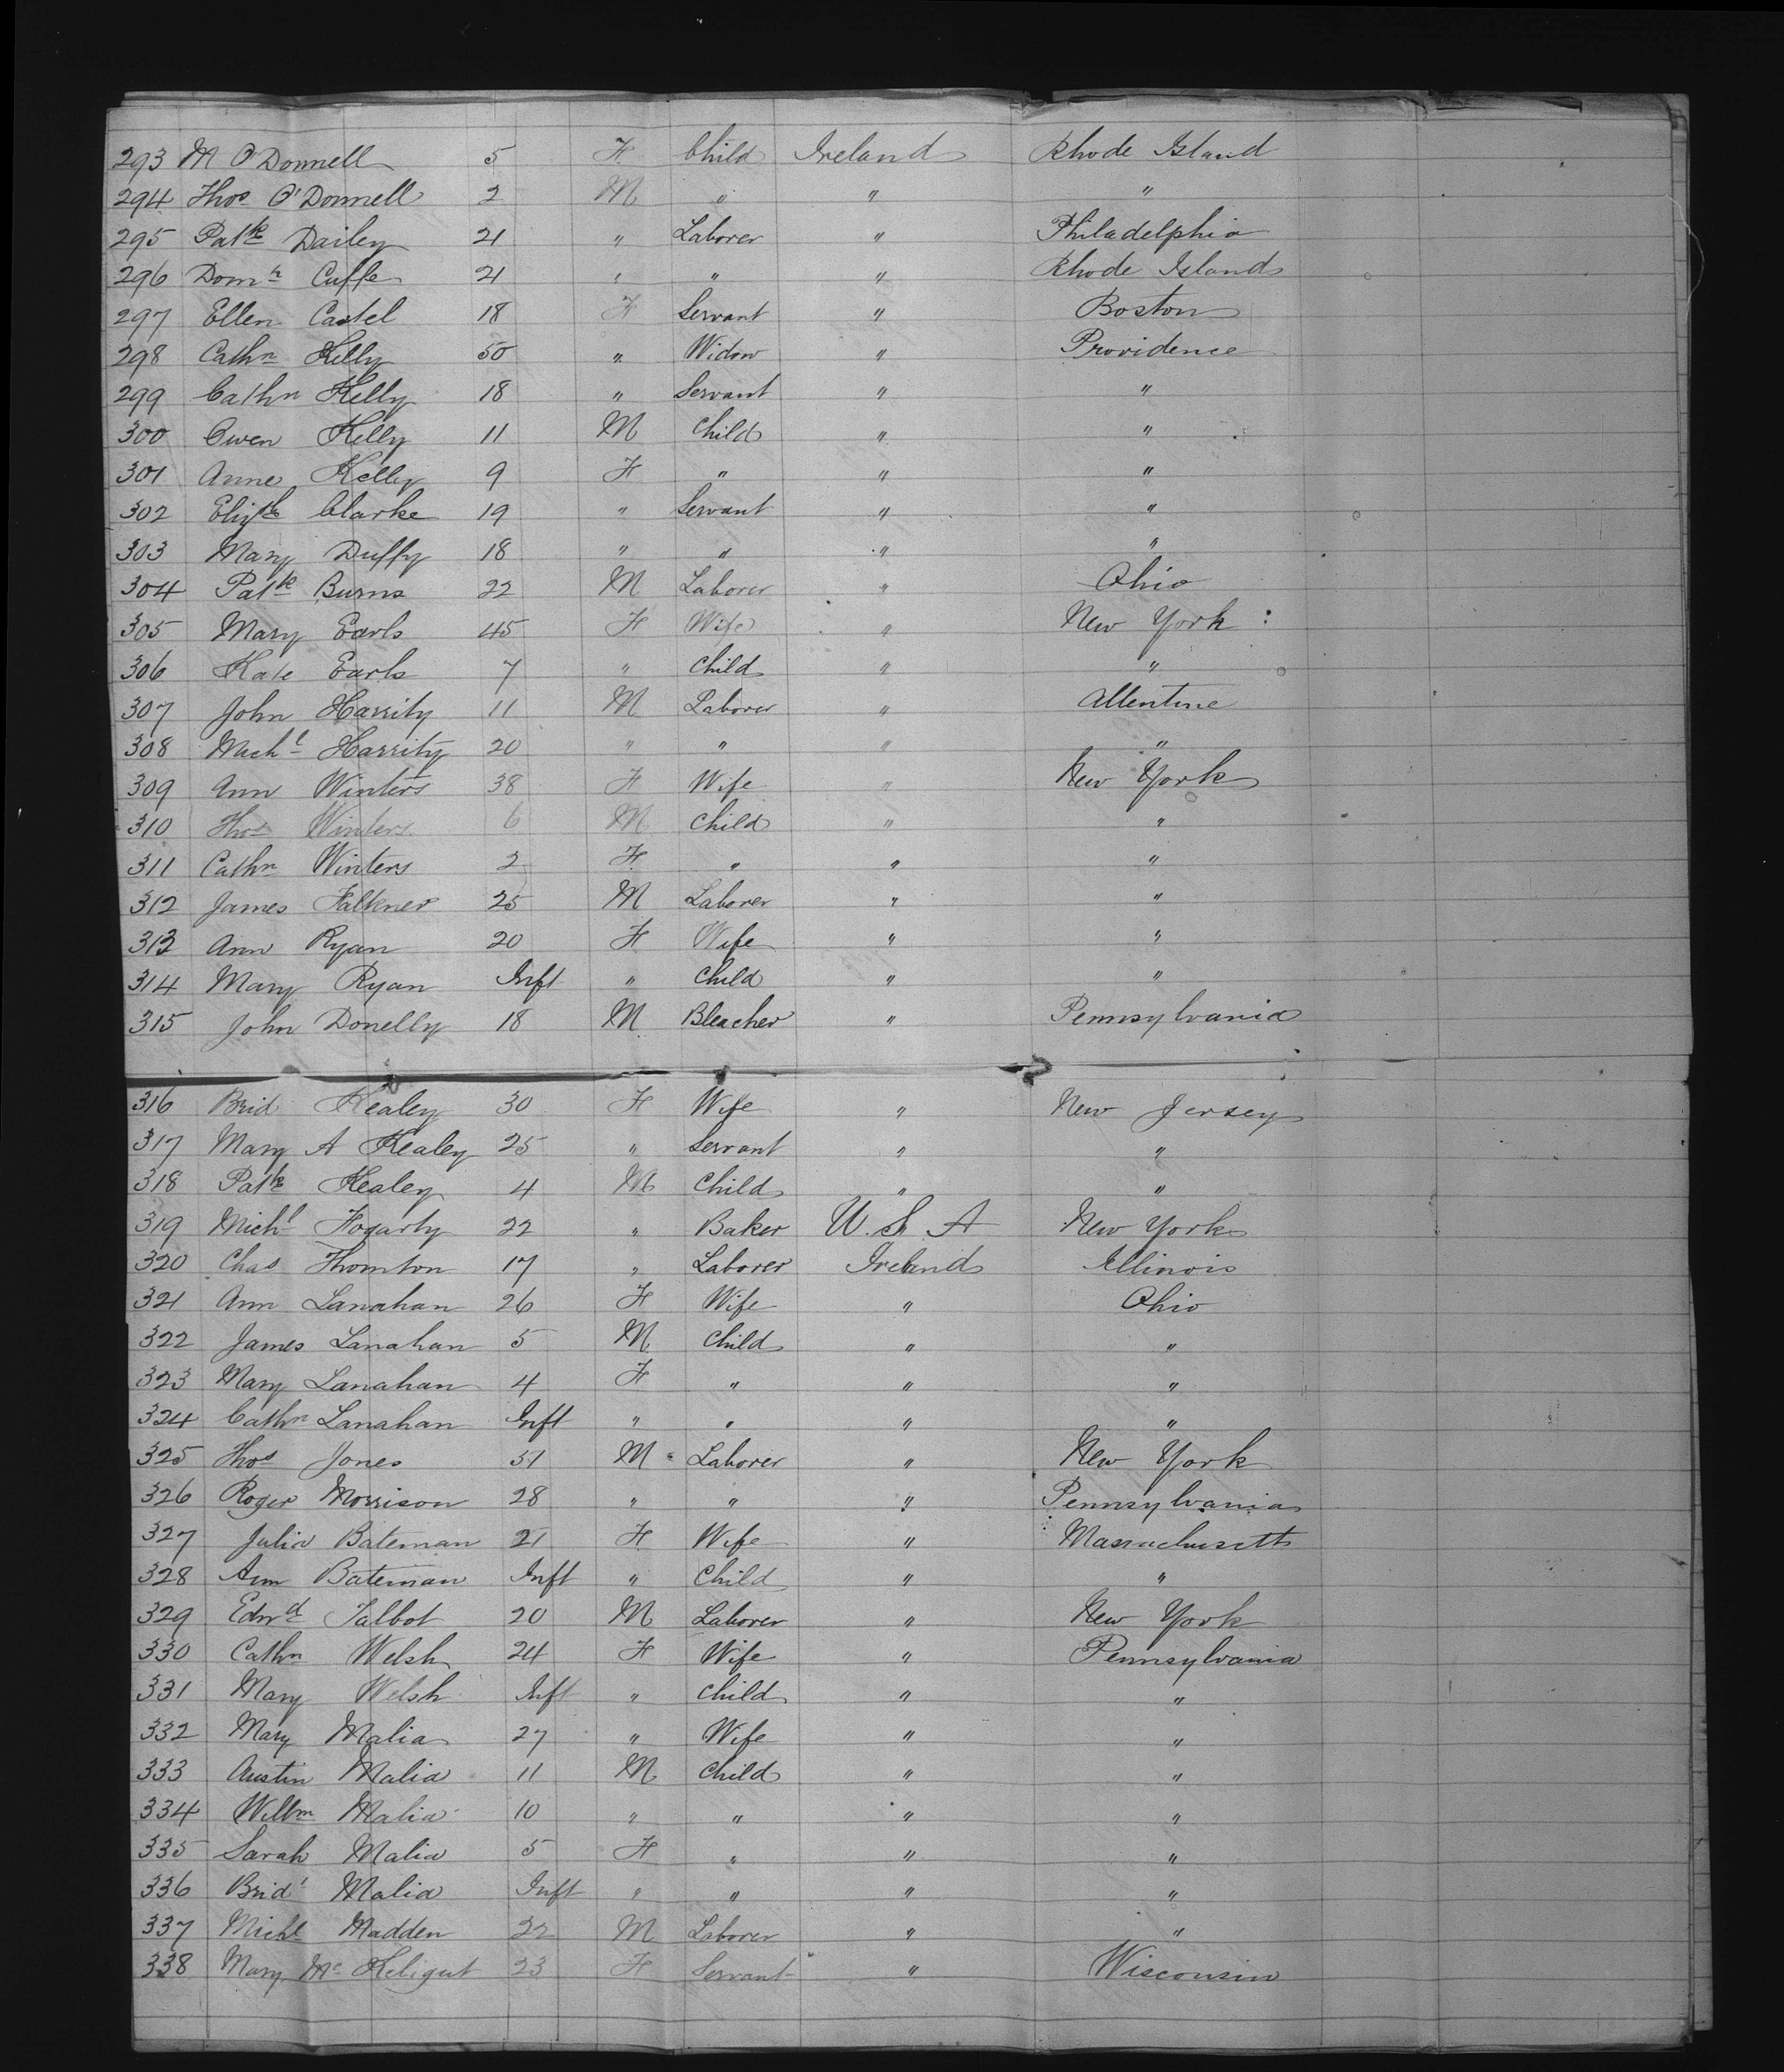 293 M O'Donnell 5 F Child Ireland Rhode Island
294 Thos O'Donnell 2 M " " "
295 Patk Dailey 21 " Laborer " Philadelphia
296 Domk Cuffe 21 " " " Rhode Island
297 Ellen Castel 18 F Servant " Boston
298 Cathn Kelly 50 " Widow " Providence
299 Cathn Kelly 18 " Servant " "
300 Owen Kelly 11 M Child " "
301 Anne Kelly 9 F " " "
302 Elizth Clarke 19 " Servant " "
303 Mary Duffy 18 " " " "
304 Patk Burns 22 M Laborer " Ohio
305 Mary Earls 45 F Wife " New York :
306 Kate Earls 7 " Child " "
307 John Harrity 11 M Laborer " Allentine
308 Michl Harrity 20 " " " "
309 Ann Winters 38 F Wife " New York
310 Thos Winters 6 M Child " "
311 Cathn Winters 2 F " " "
312 James Falkner 25 M Laborer " "
313 Ann Ryan 20 F Wife " "
314 Mary Ryan Inft " Child " "
315 John Donelly 18 M Bleacher " Pennsylvania
316 Brid Kealey 30 F Wife " New Jersey
317 Mary A Kealey 25 " Servant " "
318 Patk Kealey 4 M Child " "
319 Michl Fogarty 22 " Baker U. S. A New York
320 Chas Thornton 17 " Laborer Ireland Illinois
321 Ann Lanahan 26 F Wife " Ohio
322 James Lanahan 5 M Child " "
323 Mary Lanahan 4 F " " "
324 Cathn Lanahan Inft " " " "
325 Thos Jones 31 M Laborer " New York
326 Roger Morrison 28 " " " Pennsylvania
327 Julia Bateman 21 F Wife " Massachusetts
328 Ann Bateman Inft " Child " "
329 Edwd Talbot 20 M Laborer " New York
330 Cathn Welsh 24 F Wife " Pennsylvania
331 Mary Welsh Inft " Child " "
332 Mary Malia 27 " Wife " "
333 Austin Malia 11 M Child " "
334 Willm Malia 10 " " " "
335 Sarah Malia 5 F " " "
336 Bridt Malia Inft " " " "
337 Michl Madden 22 M Laborer " "
338 Mary Mc Keligut 23 F Servant " Wisconsin